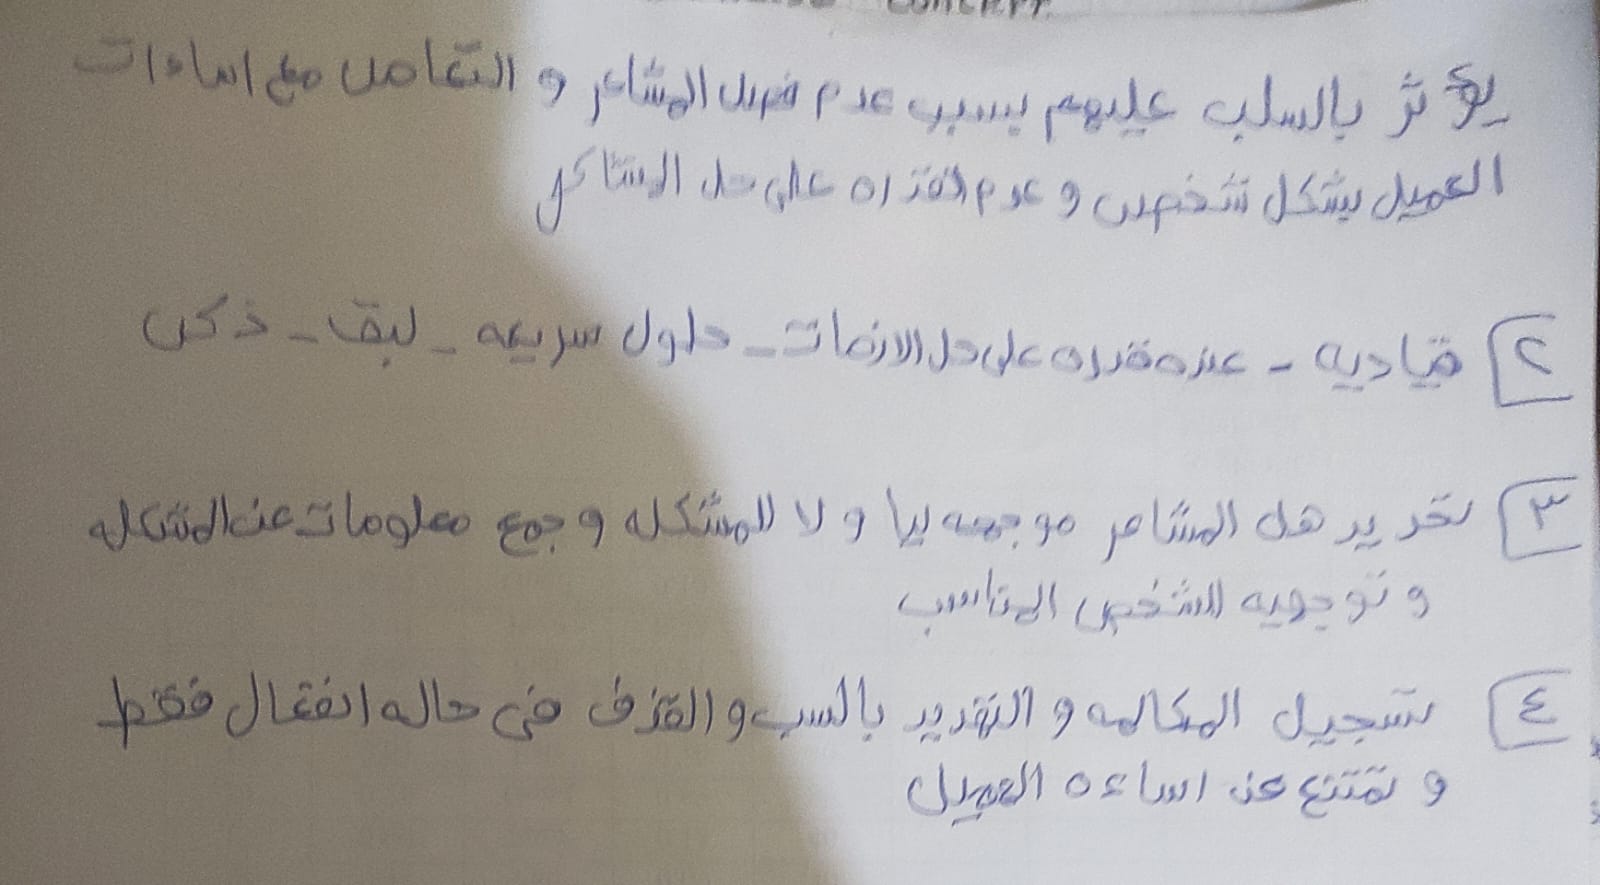 CONCEPT.
يؤثر بالسلب عليهم بسبب عدم فصل المشاعر و التعامل مع اساءات
العميل بشكل شخصى و عدم القدراه على حل المشاكل
٢ قياديه - عنده قدراه على حل الازمات - حلول سريعه - لبق - ذكى
٣ تحديد هل المشاعر موجهه ليا ولا للمشكله و جمع معلومات عن المشكله
و توجيه للشخص المناسب
٤ تسجيل المكالمه و التهديد بالسب و القذف فى حاله انفعال فقط
و تمتنع عن اساءه العميل